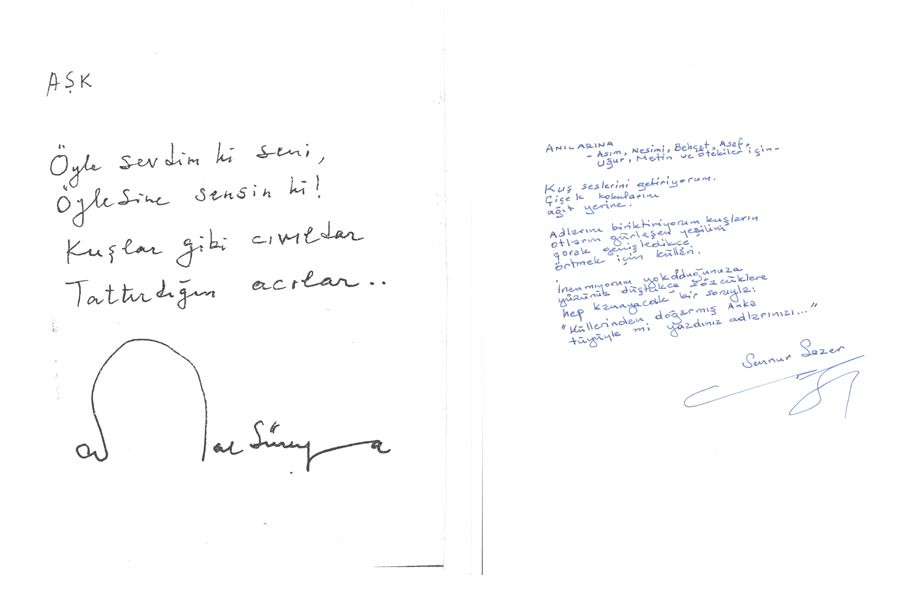 AŞK
Öyle sevdim ki seni,
Öylesine sensin ki!
Kuşlar gibi cıvıldar
Tattırdığın acılar..
al Süreya
ANILARINA
- Asım, Nesimi, Behçet, Asef,
Uğur, Metin ve ötekiler için -
Kuş seslerini getiriyorum.
Çiçek kokularını
ağıt yerine.
Adlarını biriktiriyorum kuşların
otların gürleşen yeşilini
çorak genişledikçe
örtmek için külleri.
İnanmıyorum yokolduğunuza
yüzünüz düştükçe sözcüklere
hep kanayacak bir soruyla:
"Küllerinden doğarmış Anka
tüyüyle mi yazdınız adlarınızı..."
Sennur Sezer